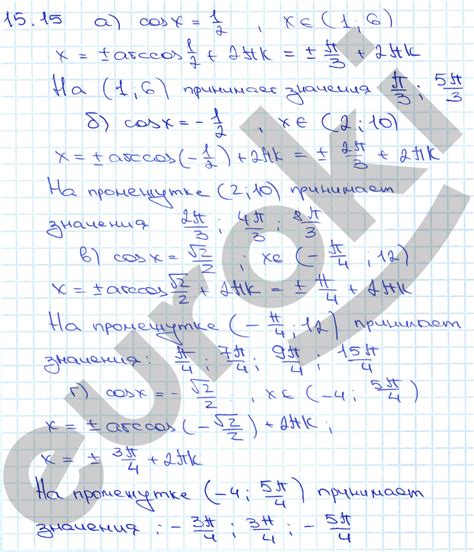 15.15 а) cosx = 1/2 , x∈(1;6)
x = ±arccos 1/2 + 2πk = ± π/3 + 2πk
На (1,6) принимает значения π/3 ; 5π/3
б) cosx = -1/2 , x∈(2;10)
x = ±arccos(-1/2) + 2πk = ± 2π/3 + 2πk
На промежутке (2;10) принимает
значения 2π/3 ; 4π/3 ; 8π/3
в) cosx = √2/2 ; x∈(-π/4, 12)
x = ±arccos √2/2 + 2πk = ± π/4 + 2πk
На промежутке (-π/4; 12) принимает
значения: π/4 ; 7π/4 ; 9π/4 ; 15π/4
г) cosx = -√2/2 , x∈(-4; 5π/4)
x = ± arccos(-√2/2) + 2πk ;
x = ± 3π/4 + 2πk
На промежутке (-4; 5π/4) принимает
значения : -3π/4 ; 3π/4 ; -5π/4
euroki